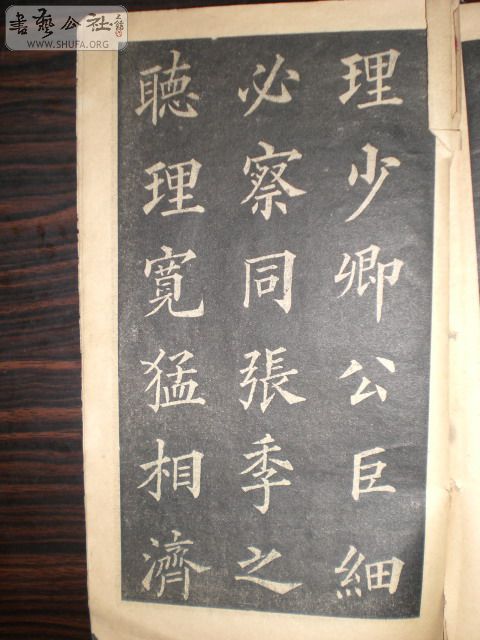 書藝公社
WWW.SHUFA.ORG
理少卿公巨細
必察同張季之
聽理寬猛相濟